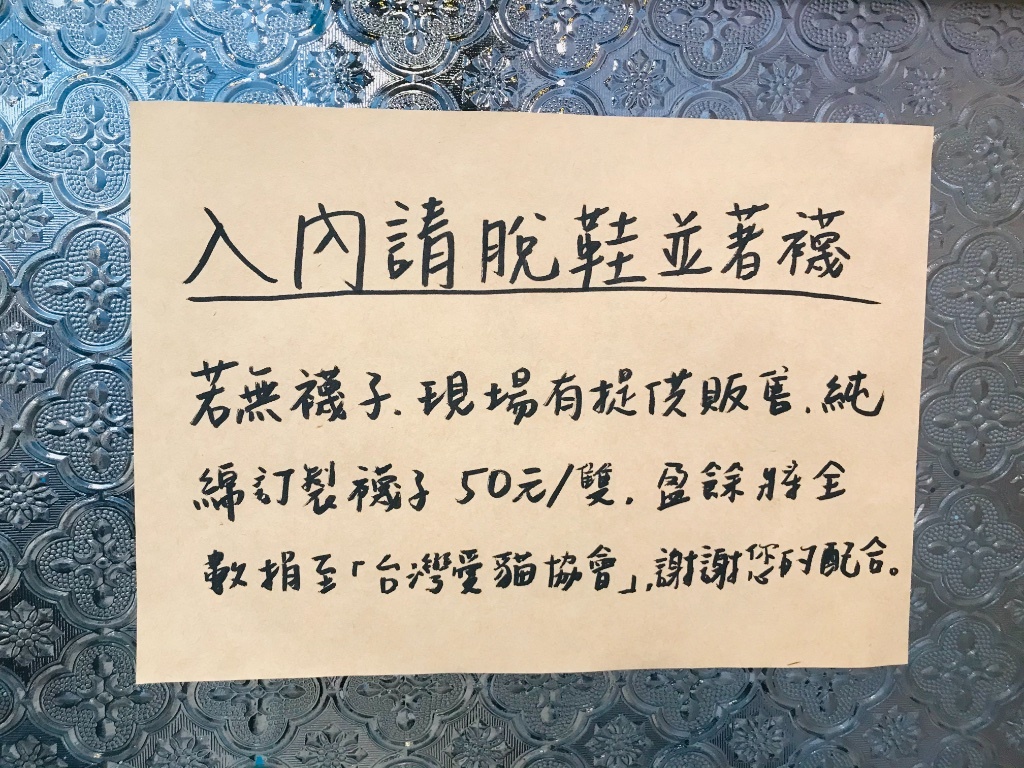 入內請脫鞋並著襪
若無襪子.現場有提供販售.純
綿訂製襪子50元/雙.盈餘將全
數捐至「台灣愛貓協會」,謝謝您的配合。